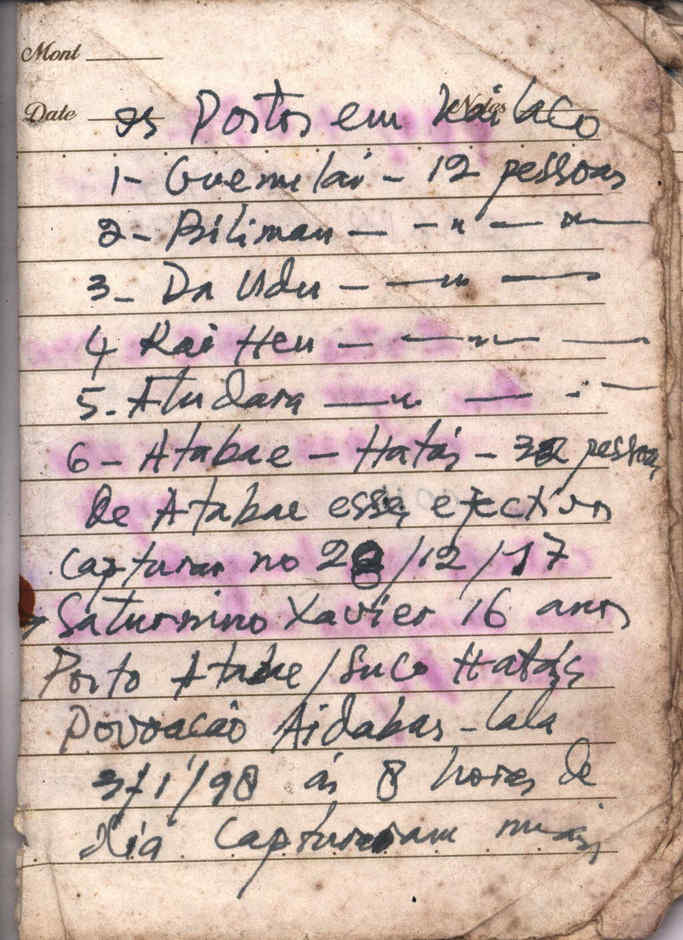 Mont
Date Notes
os Postos em Kailaco
1- Guemilai - 12 pessoas
2- Biliman — - " — " —
3- Da Udu - — " —
4 Rai Heu - — " — —
5. Atudara — " — - · —
6- Atabae - Hatás - 32 pessoas
De Atabae esses efectivos
capturas no /12/97
Saturnino Xavier 16 anos
Posto Atabae/Suco Hatás
Povoacão Aidabas-lala
3/1/98 ás 8 horas de
dia capturaram mais